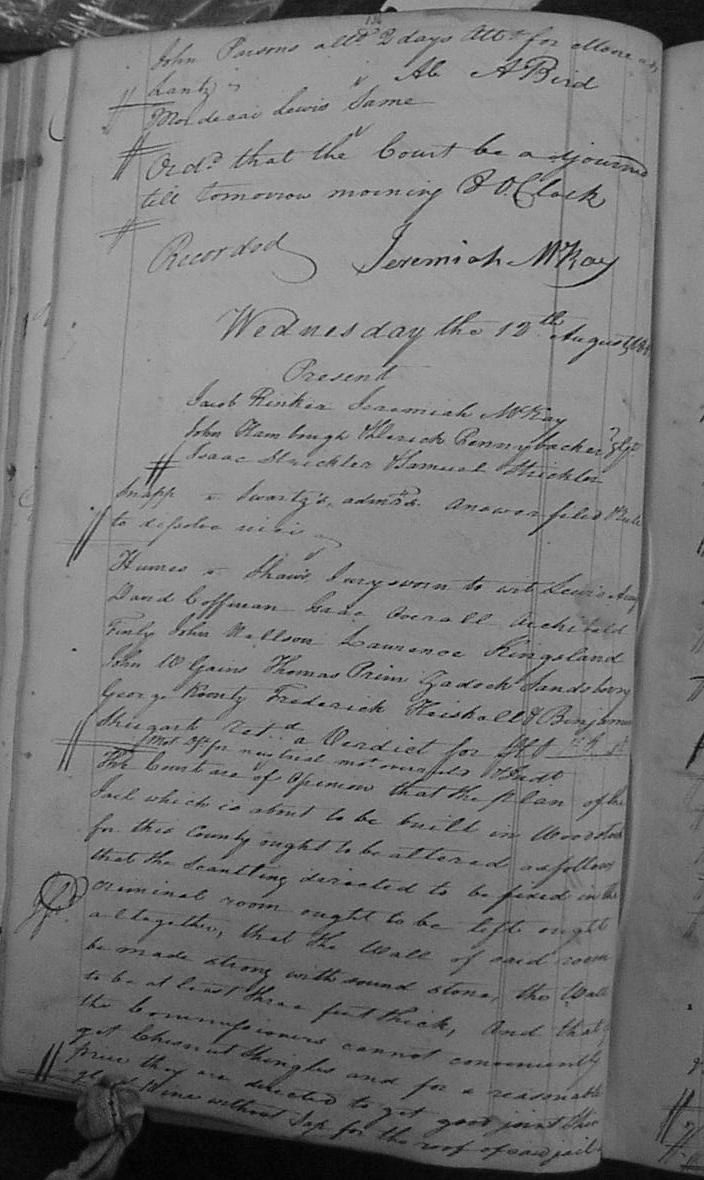 John Parsons alld 2 days Attn for Moore ads
Lantz Ab A Bird
Mordecai Lewis Same
Ordd that the Court be adjourned
till tomorrow morning 8 O Clock
Recorded Jeremiah McKay
Wednesday the 12th August
Present
Jacob Rinker Jeremiah McKay
John Hambough Pennybacker
Isaac Strickler & Samuel Strickler
Snapp Swartz's admrs. Answer filed Rule
to dissolve nisi
Humes Shaw Jury sworn to wit Lewis
David Coffman Isaac Overall Archibald
Finly John Wellson Laurence Kingsland
John W Gains Thomas Prim Zadock Sandsberry
George Koontz Frederick Heiskell & Benjamin
Shugart Retd a Verdict for
Mot for new trial mot overruled & Judt
The Court are of Opinion that the plan of the
Jail which is about to be built in Woodstock
for this County ought to be altered as follows
that the Scantling directed to be fixed in the
criminal room ought to be left
altogether, that the Wall of said room
be made strong with sound stone, the Wall
to be at least three feet thick, And that
the Commissioners cannot conveniently
get Chesnut Shingles and for a reasonable
price they are directed to get good joint
Pine without Sap for the roof of said jail